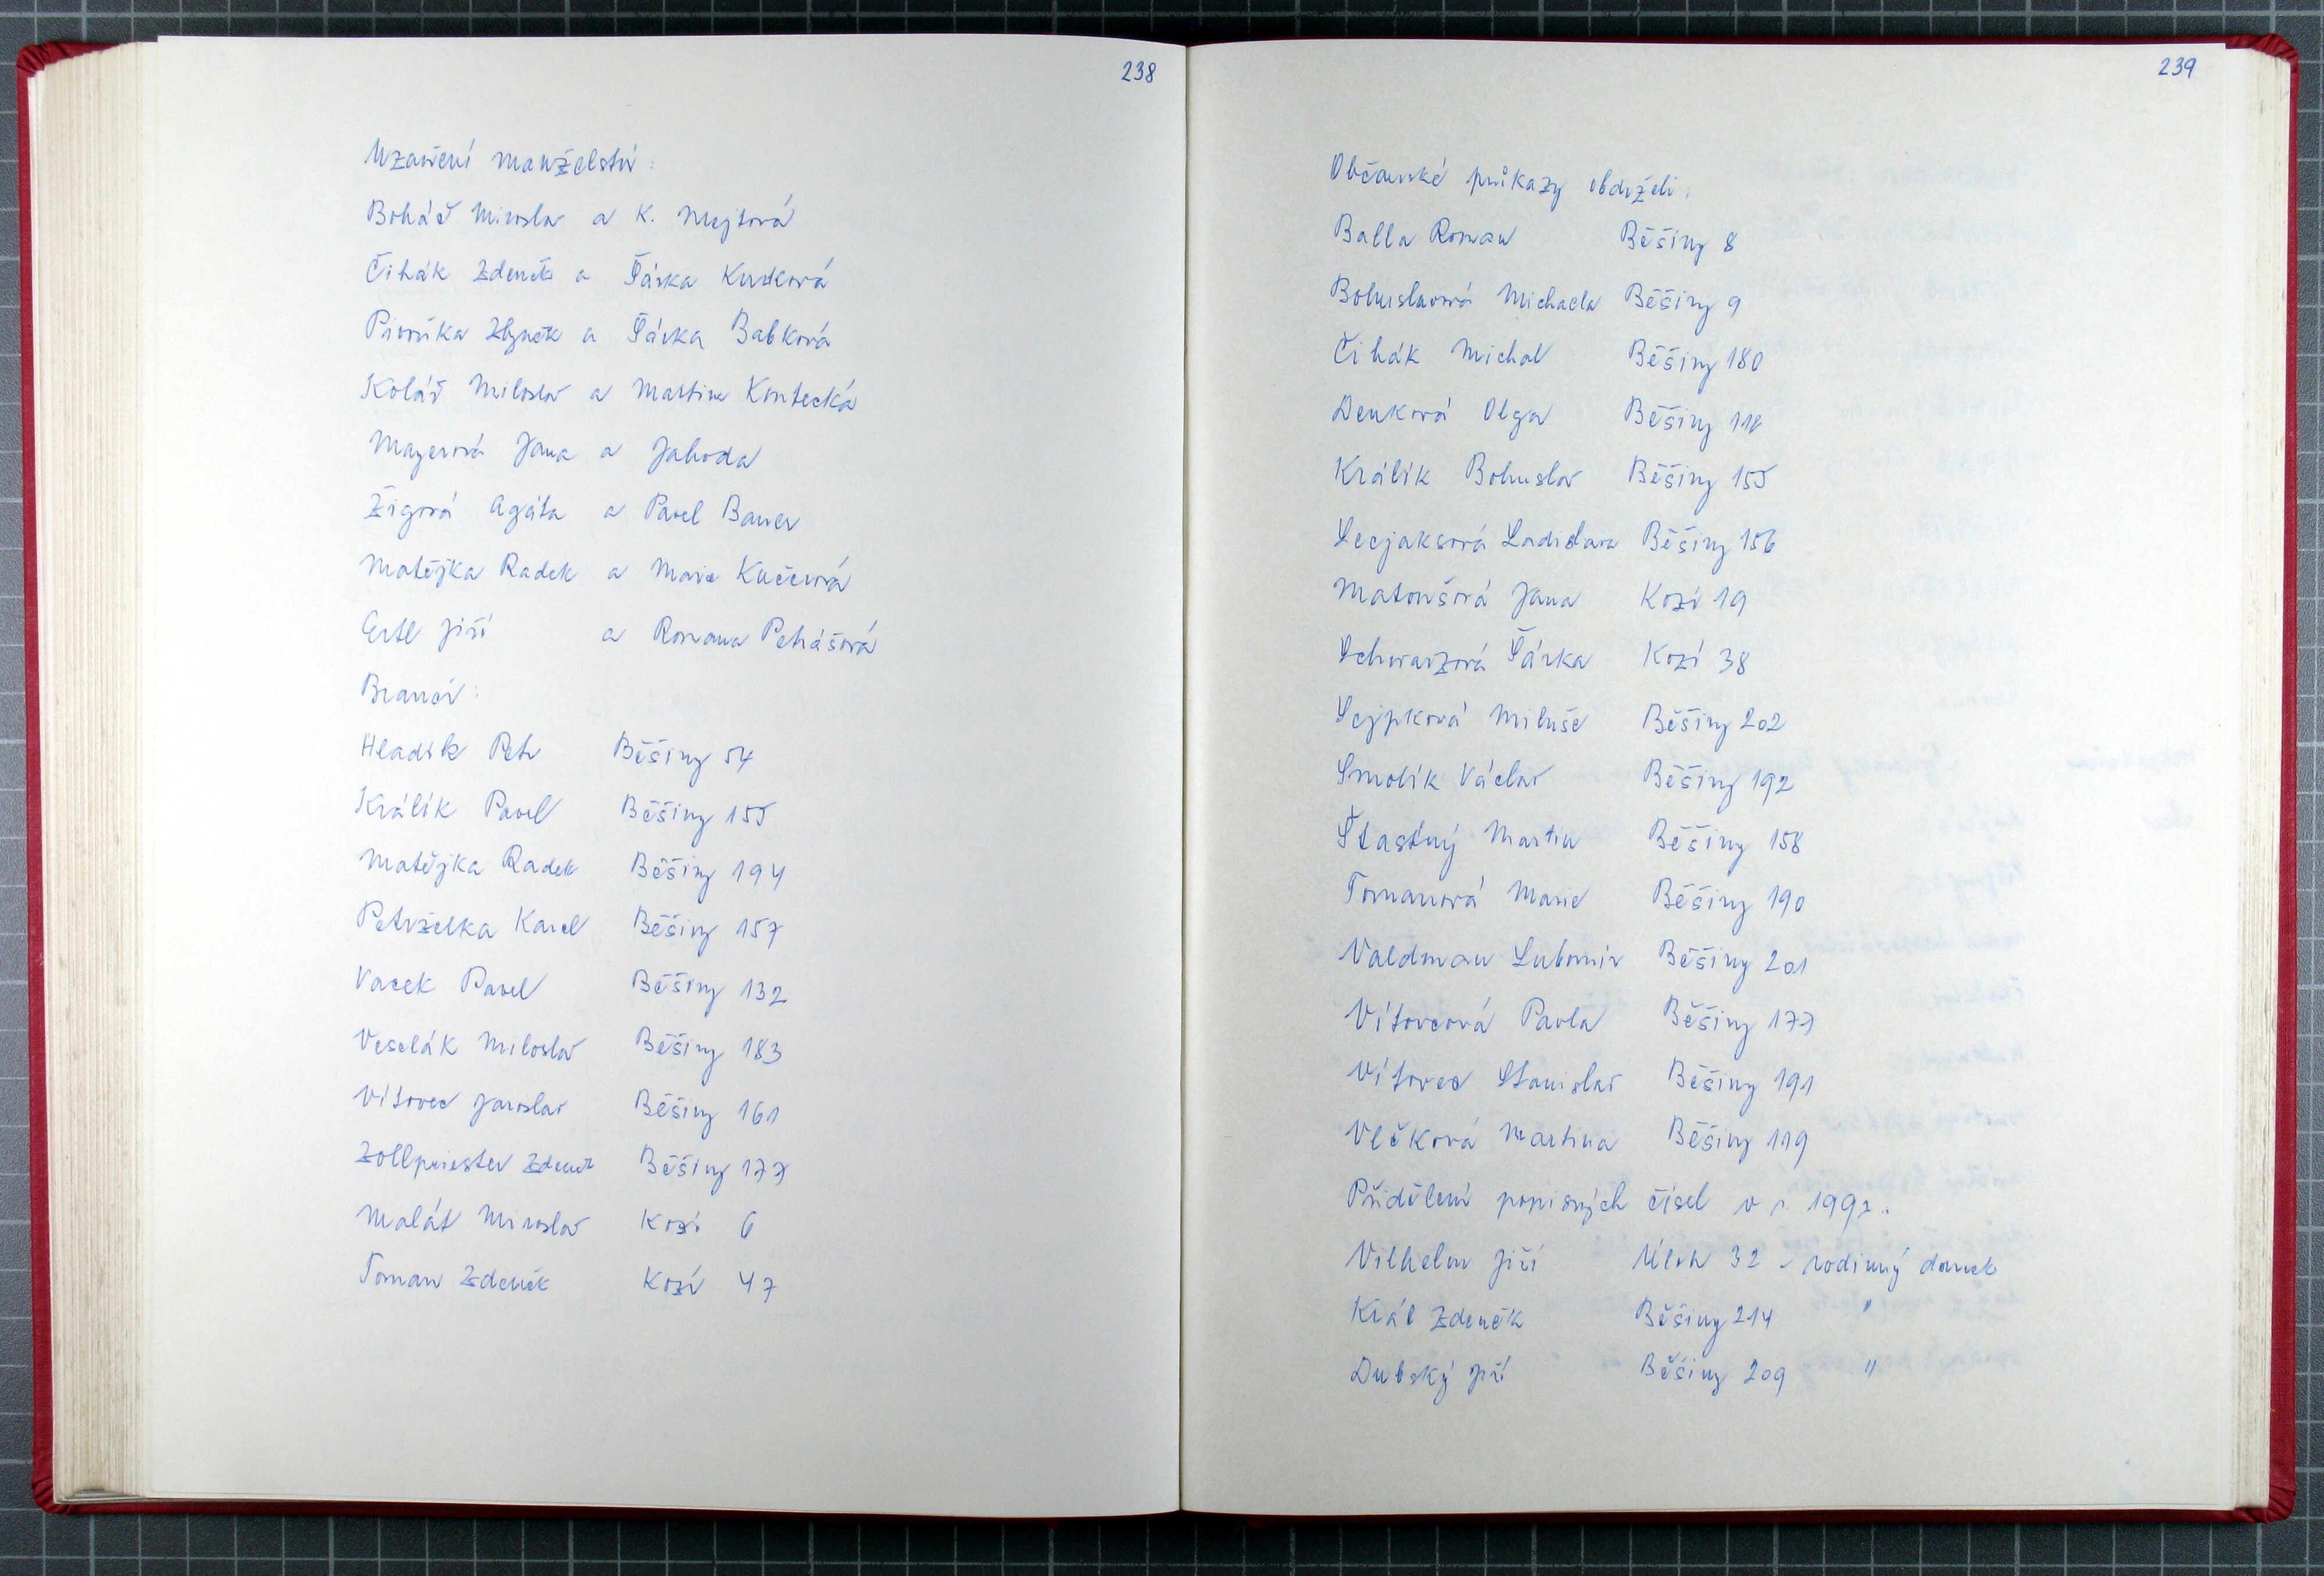 238
Uzavření manželství:
Boháč Miroslav a K. Mejtová
Čihák Zdeněk a Šárka Kurková
Pivoňka Zbyněk a Šárka Babková
Kolář Miloslav a Martina Kontecká
Mayerová Jana a Jahoda
Žigová Agáta a Pavel Bauer
Matějka Radek a Marie Kučerová
Ertl Jiří a Romana Petrášová
Branci:
Hladík Petr Běšiny 54
Králík Pavel Běšiny 155
Matějka Radek Běšiny 194
Petrželka Karel Běšiny 157
Vacek Pavel Běšiny 132
Veselák Miloslav Běšiny 183
Vítovec Jaroslav Běšiny 161
Zollpriester Zdeněk Běšiny 177
Malát Miroslav Kozí 6
Toman Zdeněk Kozí 47
239
Občanské průkazy obdrželi:
Balla Roman Běšiny 8
Bohuslavová Michaela Běšiny 9
Čihák Michal Běšiny 180
Denková Olga Běšiny
Králík Bohuslav Běšiny 155
Secjaksová Ladislava Běšiny 156
Matoušová Jana Kozí 19
Schwarzová Šárka Kozí 38
Sejpková Miluše Běšiny 202
Smolík Václav Běšiny 192
Šťastný Martin Běšiny 158
Tomanová Marie Běšiny 190
Valdman Lubomír Běšiny 201
Vítovcová Pavla Běšiny 177
Vítovec Stanislav Běšiny 191
Vlčková Martina Běšiny 119
Přidělení popisných čísel v r. 1992.
Vilhelm Jiří Úloh 32 - rodinný domek
Král Zdeněk Běšiny 214 "
Dubský Jiří Běšiny 209 "